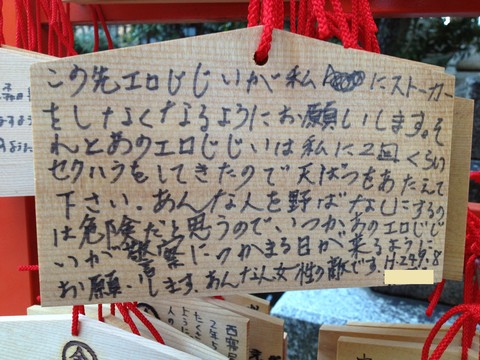 この先エロじじいが私にストーカー
をしなくなるようにお願いします。そ
れとあのエロじじいは私に2回くらい
セクハラをしてきたので天ばつをあたえて
下さい。あんな人を野ばなしにするの
は危険だと思うので、いつかあのエロじじ
いが警察につかまる日が来るように
お願いします。あんな人女性の敵です。H-24.9.8